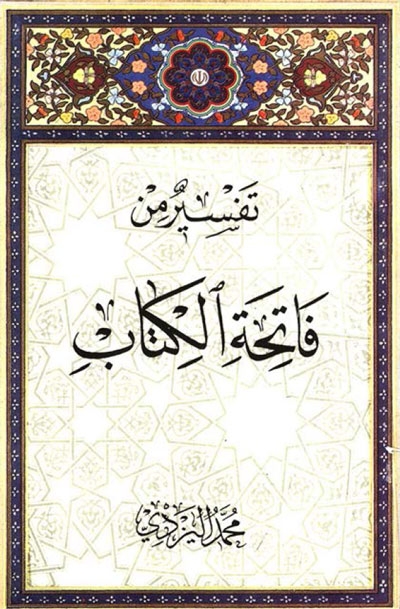 تَفْسِيرٌ مِنْ
فَاتِحَةِ ٱلْكِتَابِ
مُحَمَّدُ الْيَزْدِيّ